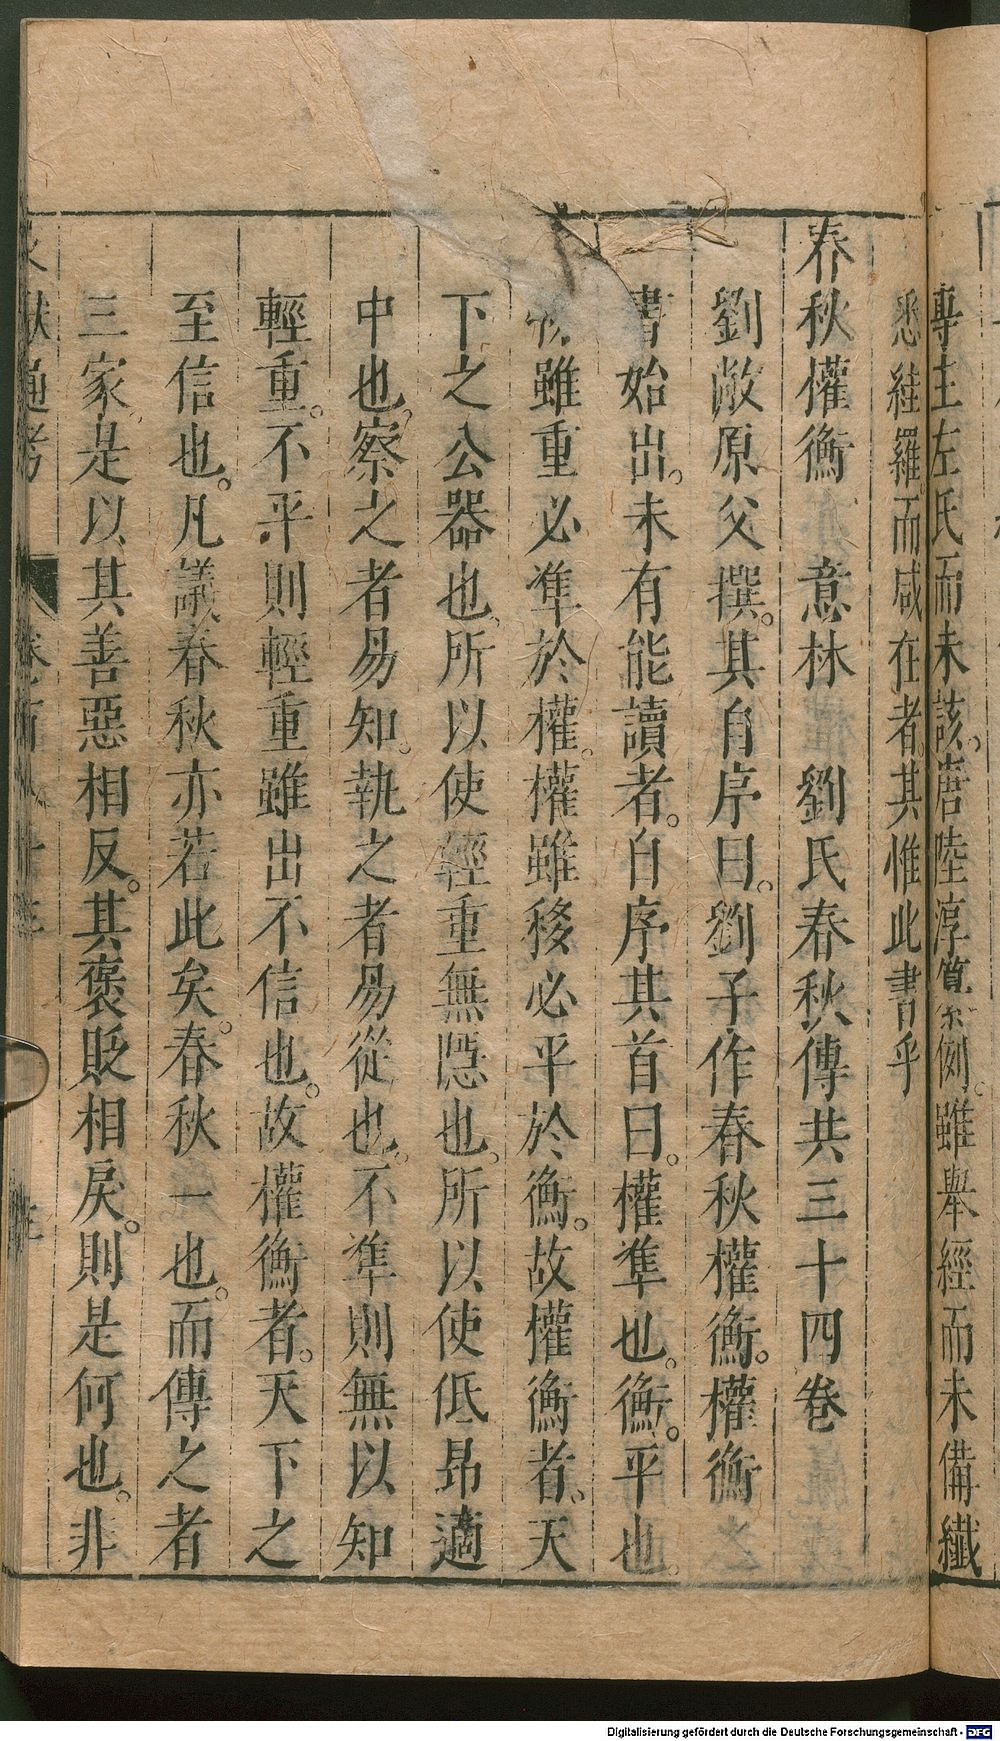 專主左氏而未該。唐陸淳纂例。雖舉經而未備纖
悉絓羅。而咸在者。其惟此書乎
春秋權衡　意林　劉氏春秋傳共三十四卷
劉敞原父撰。其自序曰。劉子作春秋權衡。權衡之
書始出。未有能讀者。自序其首曰。權準也。衡。平也。
物雖重必準於權。權雖移必平於衡。故權衡者。天
下之公器也。所以使輕重無隱也。所以使低昂適
中也。察之者易知。執之者易從也。不準則無以知
輕重。不平則輕重雖出不信也。故權衡者。天下之
至信也。凡議春秋亦若此矣。春秋一也。而傳之者
三家。是以其善惡相反。其褒貶相戾。則是何也。非
獻通考
Digitalisierung gefördert durch die Deutsche Forschungsgemeinschaft - DFG